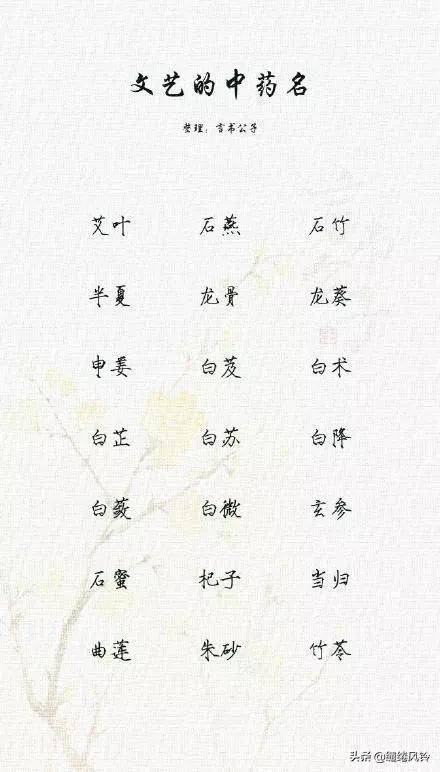 文艺的中药名
整理：言书公子
艾叶 石燕 石竹
半夏 龙骨 龙葵
申姜 白芨 白术
白芷 白苏 白降
白蔹 白微 玄参
石蜜 杞子 当归
曲莲 朱砂 竹苓
头条 @缱绻风铃